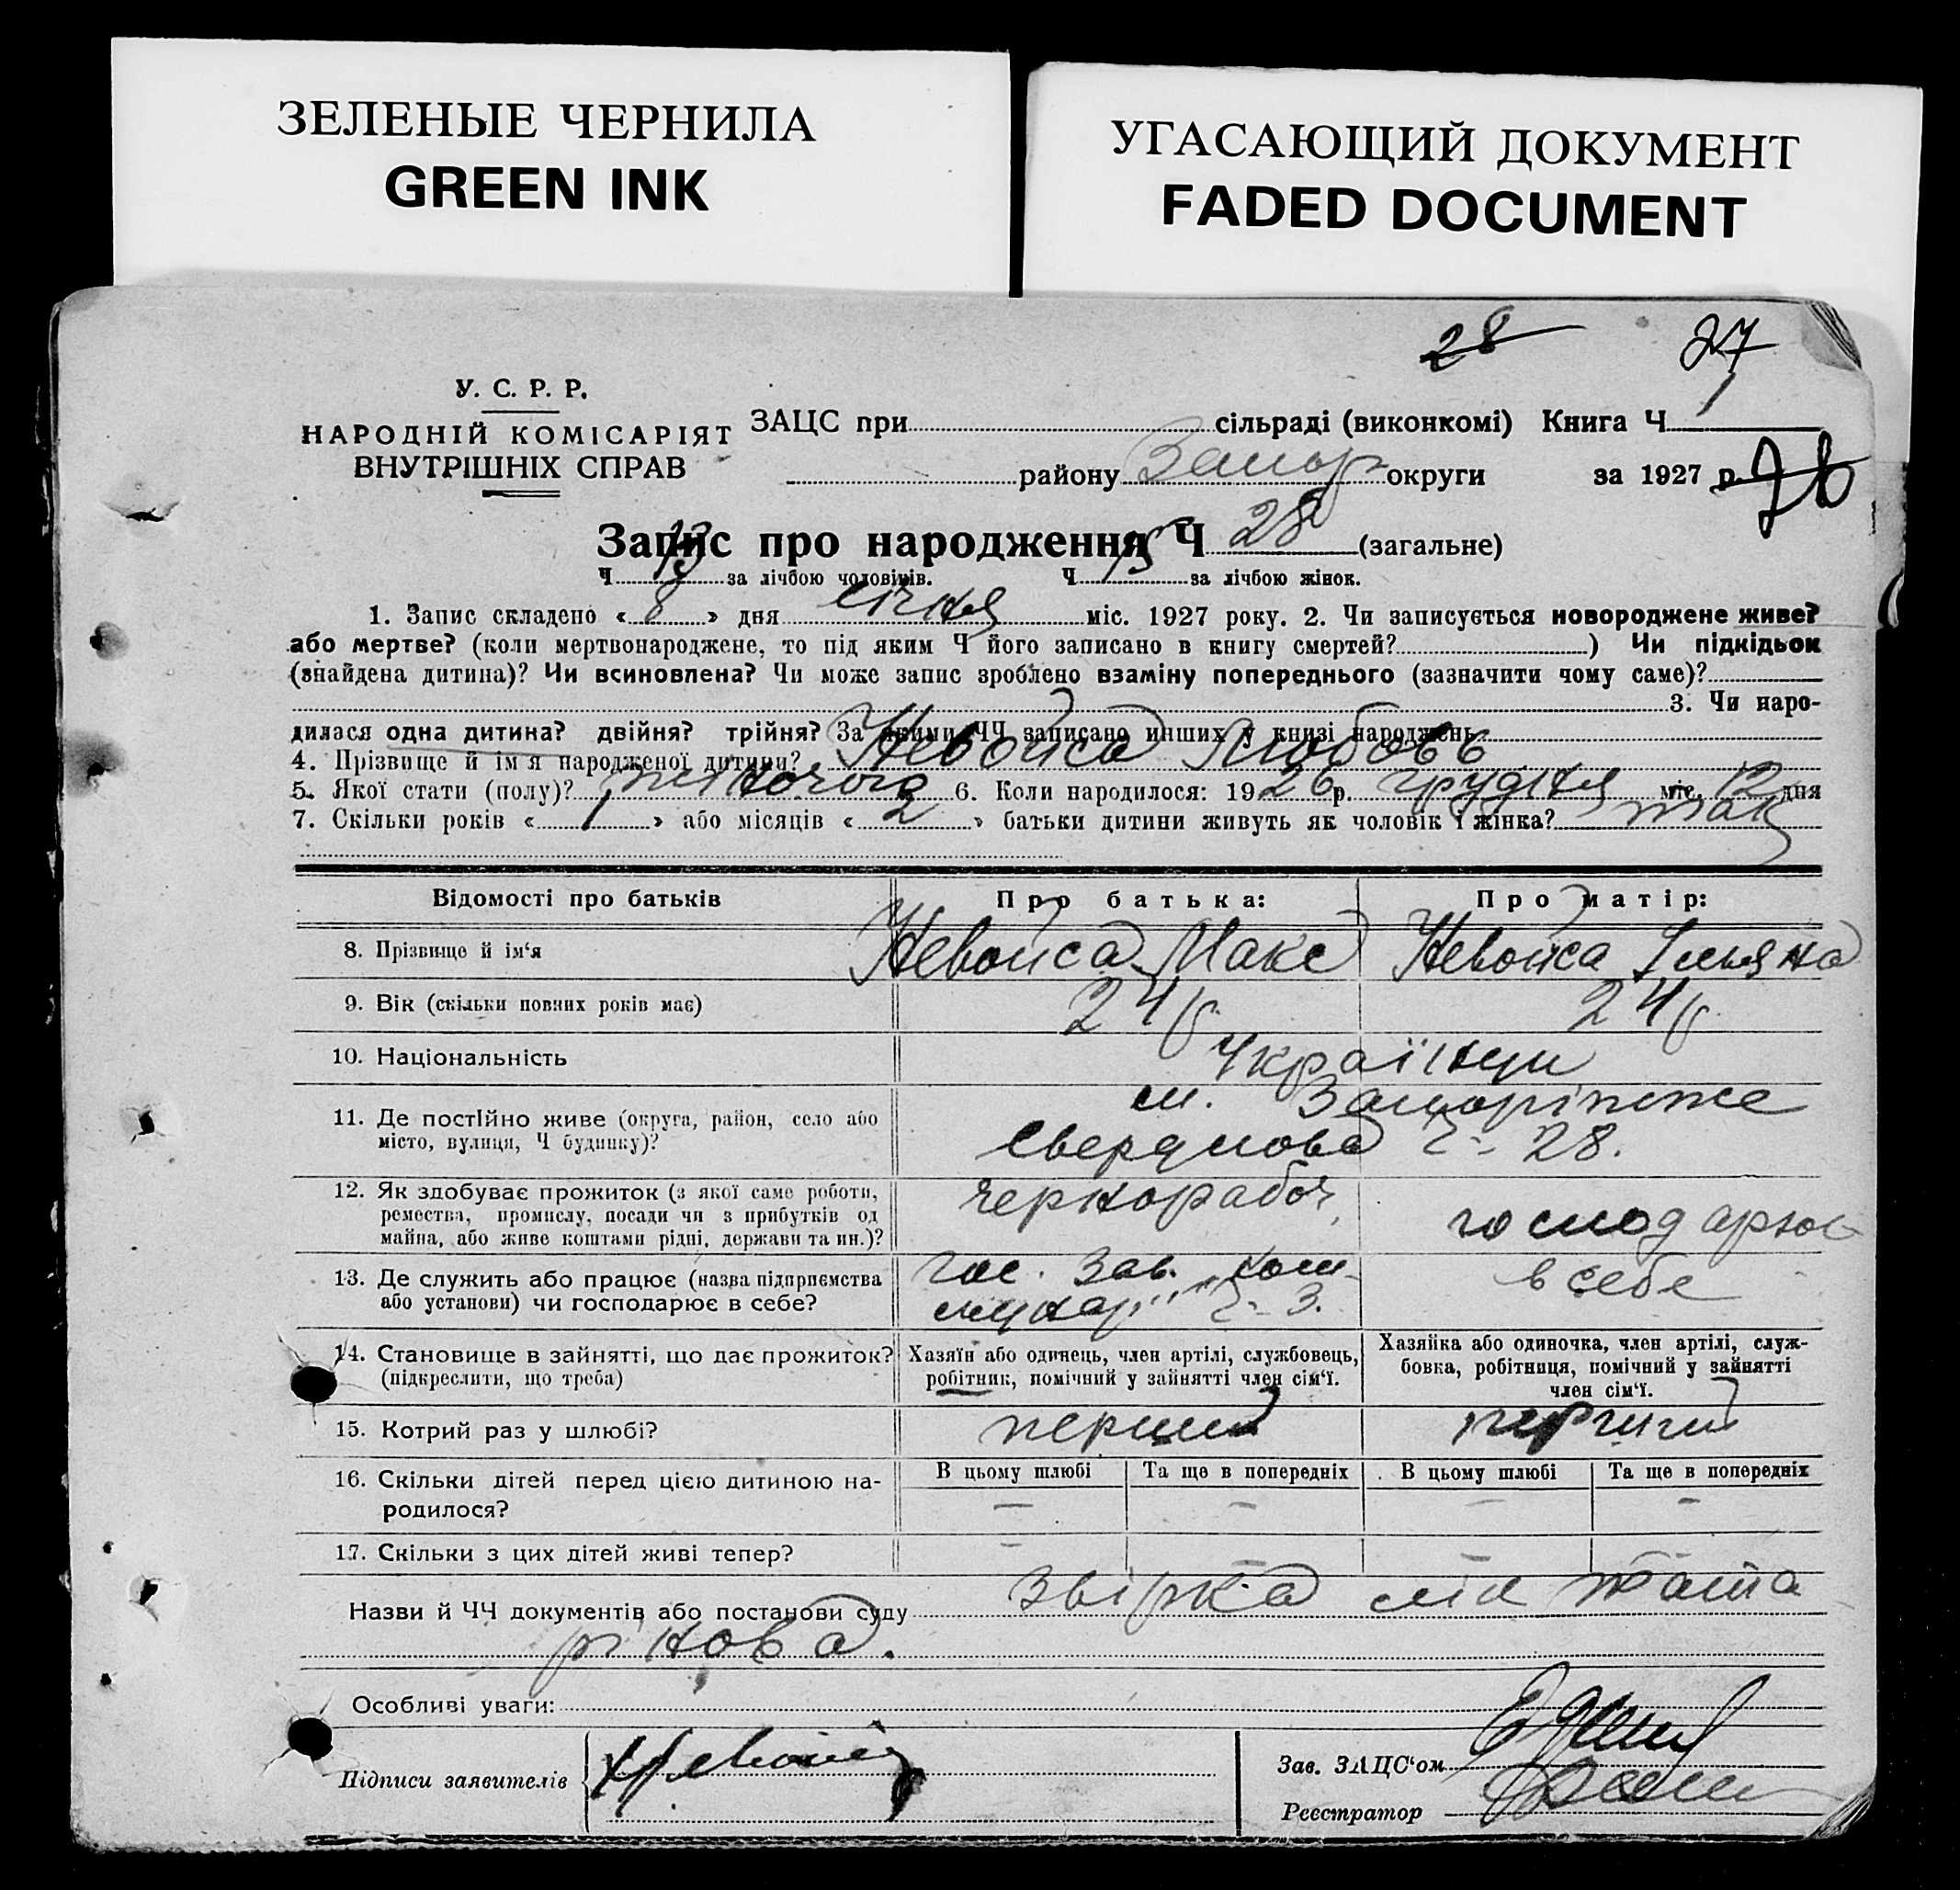 ЗЕЛЕНЫЕ ЧЕРНИЛА
GREEN INK
УГАСАЮЩИЙ ДОКУМЕНТ
FADED DOCUMENT
28 27
У. С. Р. Р.
НАРОДНІЙ КОМІСАРІЯТ
ВНУТРІШНІХ СПРАВ
ЗАЦС при сільраді (виконкомі) Книга Ч
району Запор округи за 1927 р. 26
Запис про народження Ч 28 (загальне)
Ч 13 за лічбою чоловіків. Ч 15 за лічбою жінок.
1. Запис складено « 8 » дня січня міс. 1927 року. 2. Чи записується новороджене живе?
або мертве? (коли мертвонароджене, то під яким Ч його записано в книгу смертей? ) Чи підкідьок
(знайдена дитина)? Чи всиновлена? Чи може запис зроблено взаміну попереднього (зазначити чому саме)?
3. Чи наро-
дилася одна дитина? двійня? трійня? За якими ЧЧ записано инших у книзі народжень
4. Прізвище й ім'я народженої дитини? Невойса Любовь
5. Якої стати (полу)? жіночого 6. Коли народилося: 1926 р. грудня міс. 12 дня
7. Скільки років « 1 » або місяців « 2 » батьки дитини живуть як чоловік і жінка? так
Відомості про батьків Про батька: Про матір:
8. Прізвище й ім'я Невойса Макс Невойса Ульяна
9. Вік (скільки повних років має) 24 р. 24 р.
10. Національність Українци
11. Де постійно живе (округа, район, село або м. Запоріжже
місто, вулиця, Ч будинку)? Свердлова Ч- 28.
12. Як здобуває прожиток (з якої саме роботи, чернорабоч,
ремества, промислу, посади чи з прибутків од господарює
майна, або живе коштами рідні, держави та ин.)?
13. Де служить або працює (назва підприємства Гос. Зав. Ком- в себе
або установи) чи господарює в себе? мунар" Ч- 3.
14. Становище в зайнятті, що дає прожиток? Хазяїн або одинець, член артілі, службовець, Хазяйка або одиночка, член артілі, служ-
(підкреслити, що треба) робітник, помічний у зайнятті член сім'ї. бовка, робітниця, помічний у зайнятті
член сім'ї.
15. Котрий раз у шлюбі? перший перший
16. Скільки дітей перед цією дитиною на- В цьому шлюбі Та ще в попередніх В цьому шлюбі Та ще в попередніх
родилося? — — — —
17. Скільки з цих дітей живі тепер? — — — —
Назви й ЧЧ документів або постанови суду звірка
Особливі уваги:
Підписи заявителів
Зав. ЗАЦС'ом
Реєстратор